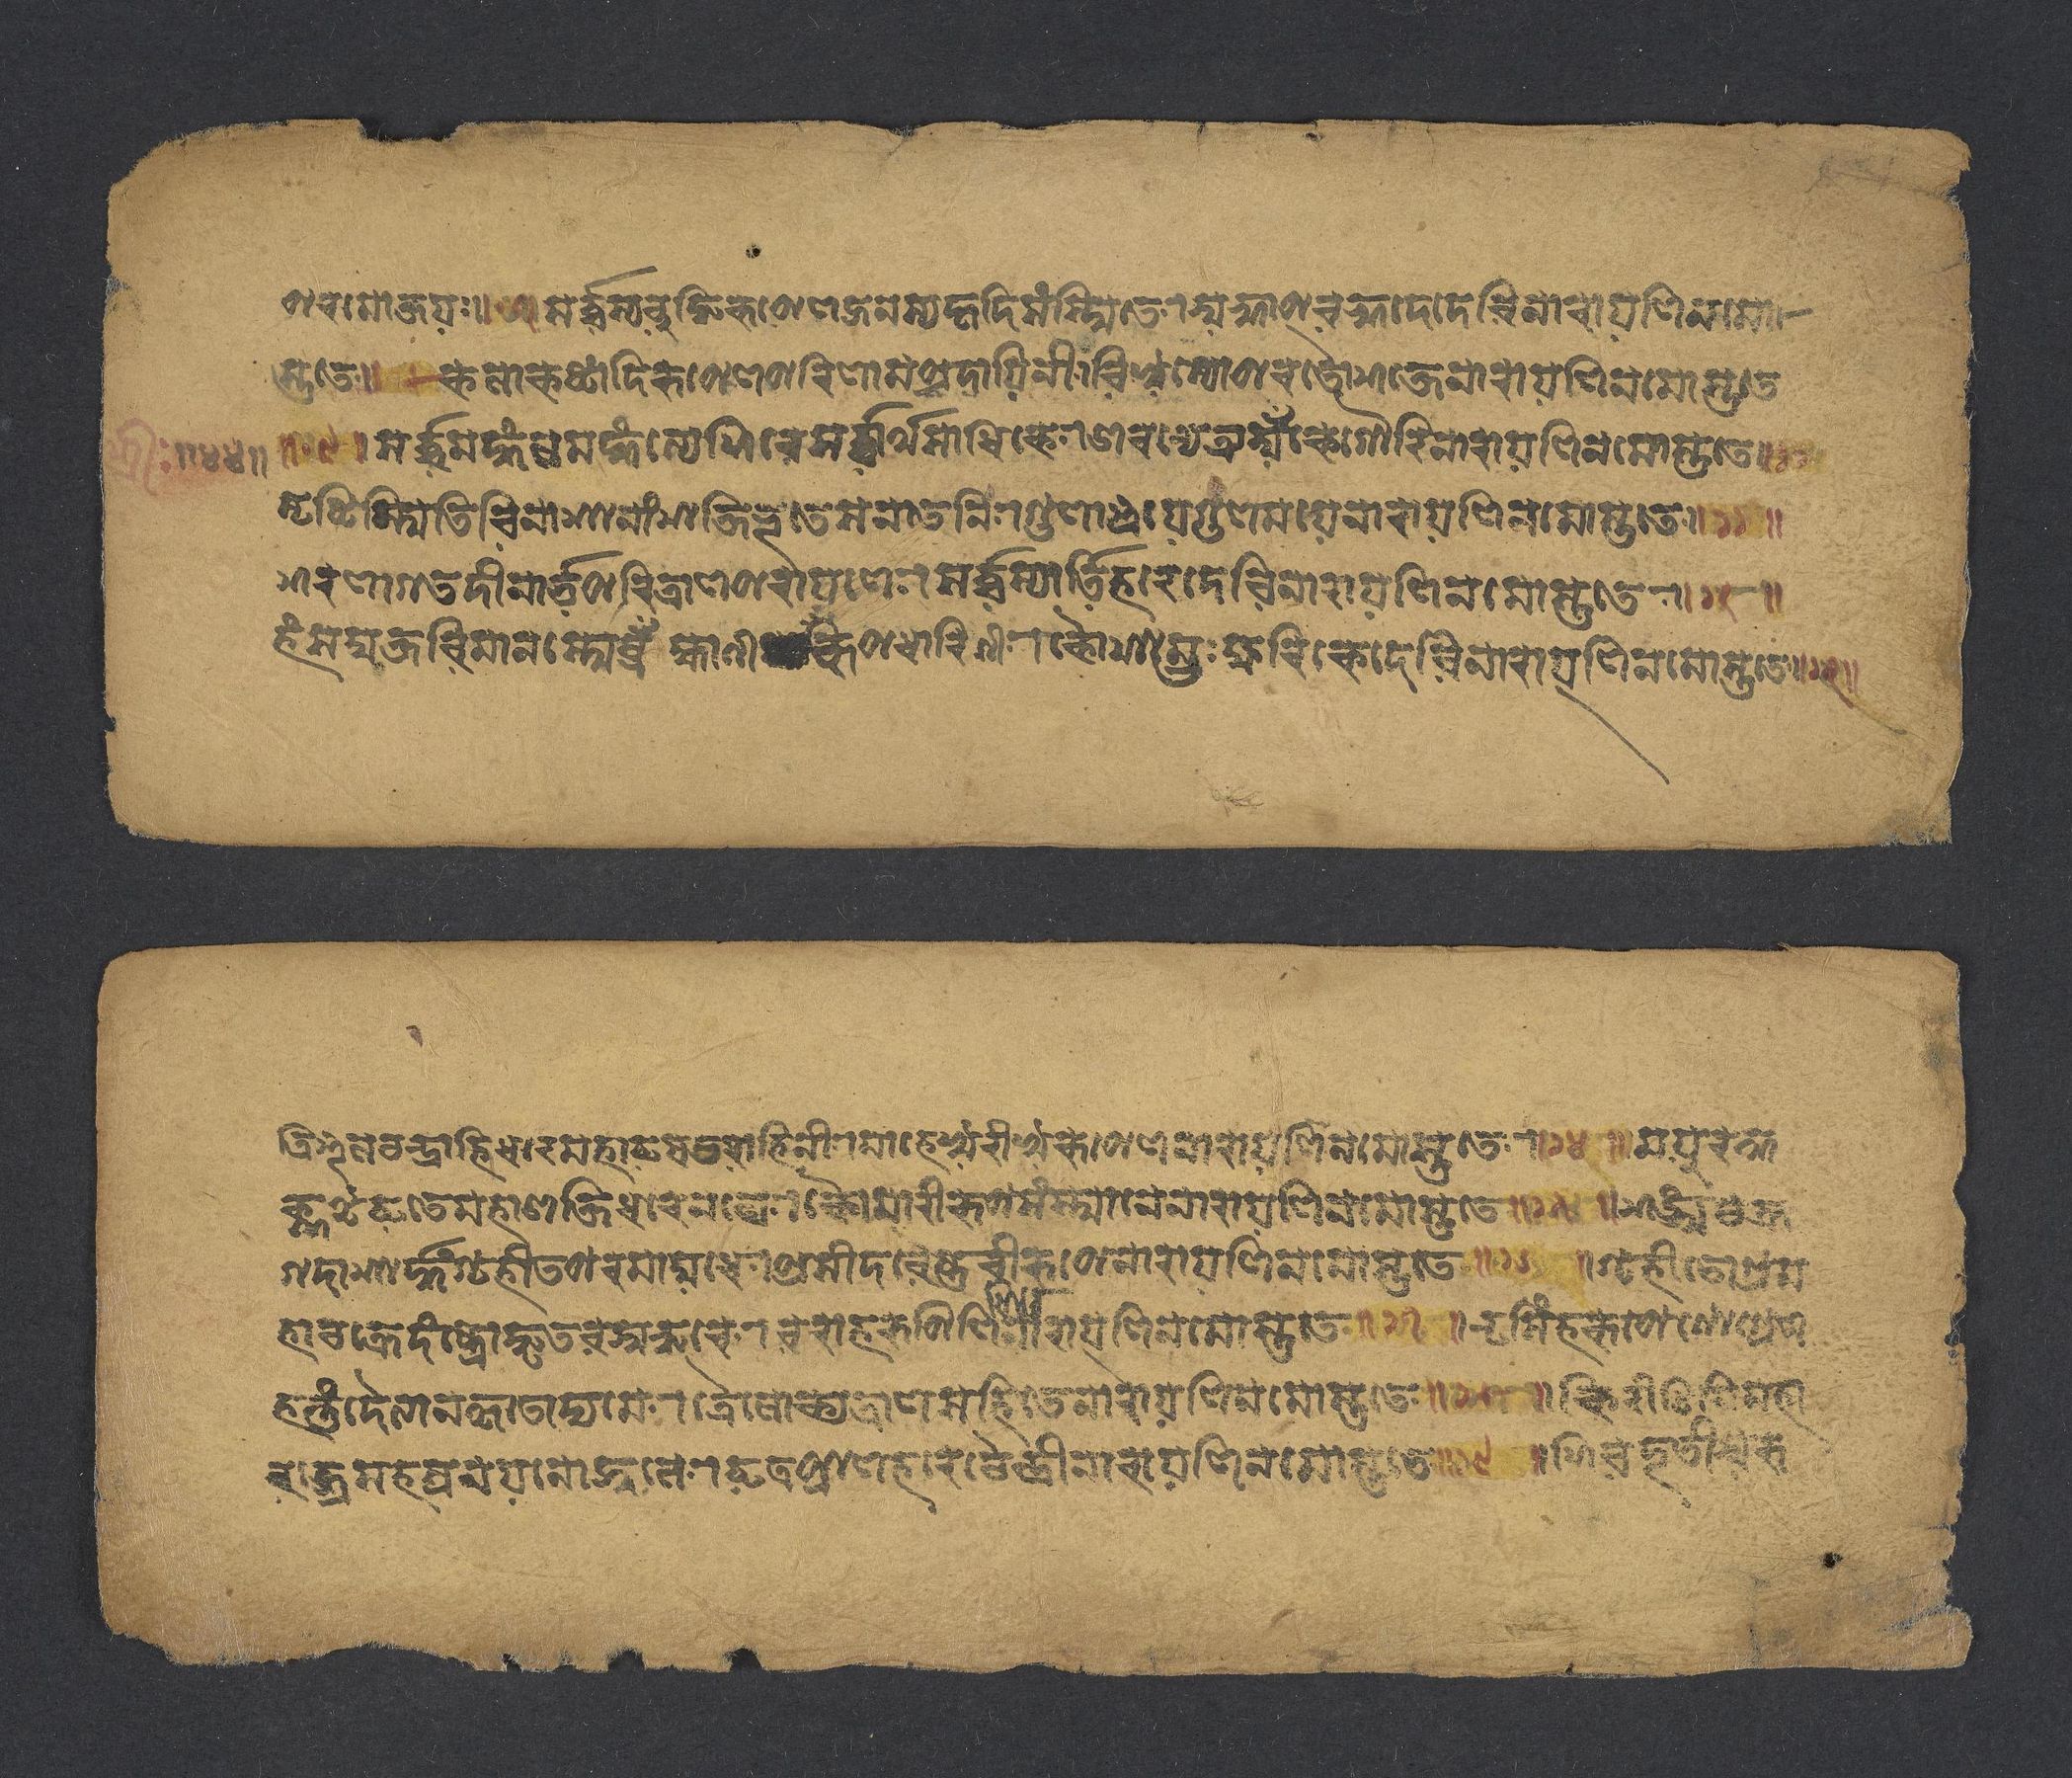 পরমোক্তয়ঃ॥৭॥সর্ব্বস্যবুদ্ধিরূপেণজনস্যহৃদিসংস্থিতে।স্বর্গাপবর্গদেদেবিনারায়ণিনমো
স্তুতে॥৮॥কলাকাষ্ঠাদিরূপেণপরিণামপ্রদায়িনী।বিশ্বস্যোপরতৌশক্তেনারায়ণিনমোস্তুতে
শ্রীঃ॥৪৪॥
॥৯॥সর্ব্বমঙ্গলমঙ্গল্যেশিবেসর্ব্বার্থসাধিকে।শরণ্যেত্র্যম্বকেগৌরিনারায়ণিনমোস্তুতে॥১০
সৃষ্টিস্থিতিবিনাশানাংশক্তিভূতেসনাতনি।গুণাশ্রয়েগুণময়েনারায়ণিনমোস্তুতে॥১১॥
শরণাগতদীনার্ত্তপরিত্রাণপরায়ণে।সর্ব্বস্যার্ত্তিহরেদেবিনারায়ণিনমোস্তুতে।১২॥
হংসযুক্তবিমানস্থেব্রহ্মাণীরূপধারিণী।কৌশাম্ভঃক্ষরিকেদেবিনারায়ণিনমোস্তুতে॥১৩॥
ত্রিশূলচন্দ্রাহিধরেমহাবৃষভবাহিনী।মাহেশ্বরীস্বরূপেণনারায়ণিনমোস্তুতে।১৪॥ময়ূরক
ক্কুটবৃতেমহাশক্তিধরেনঘে।কৌমারীরূপসংস্থানেনারায়ণিনমোস্তুতে॥১৫॥শঙ্খচক্র
গদাশার্ঙ্গগৃহীতপরমায়ুধে।প্রসীদবৈষ্ণবীরূপেনারায়ণিনমোস্তুতে॥১৬॥গৃহীতোগ্রম
হাচক্রেদংষ্ট্রোদ্ধৃতবসুন্ধরে।বরাহরূপিণিশিবেনারায়ণিনমোস্তুতে॥১৭॥নৃসিংহরূপেণোগ্রেণ
হন্তুংদৈত্যানকৃতোদ্যমে।ত্রৈলোক্যত্রাণসহিতেনারায়ণিনমোস্তুতে॥১৮॥কিরীটিনিমহা
বজ্রেসহস্রনয়নোজ্জ্বলে।বৃত্রপ্রাণহরেচৈন্দ্রীনারায়ণিনমোস্তুতে॥১৯॥শিবদূতীস্বরূ